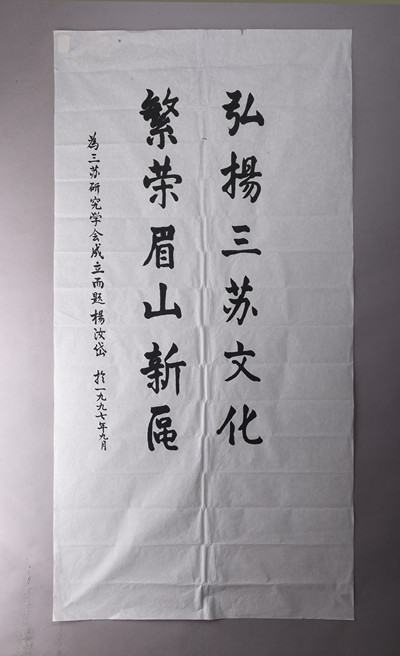 弘揚三苏文化
繁荣眉山新區
為三苏研究学会成立而题 楊汝岱 於一九九七年九月